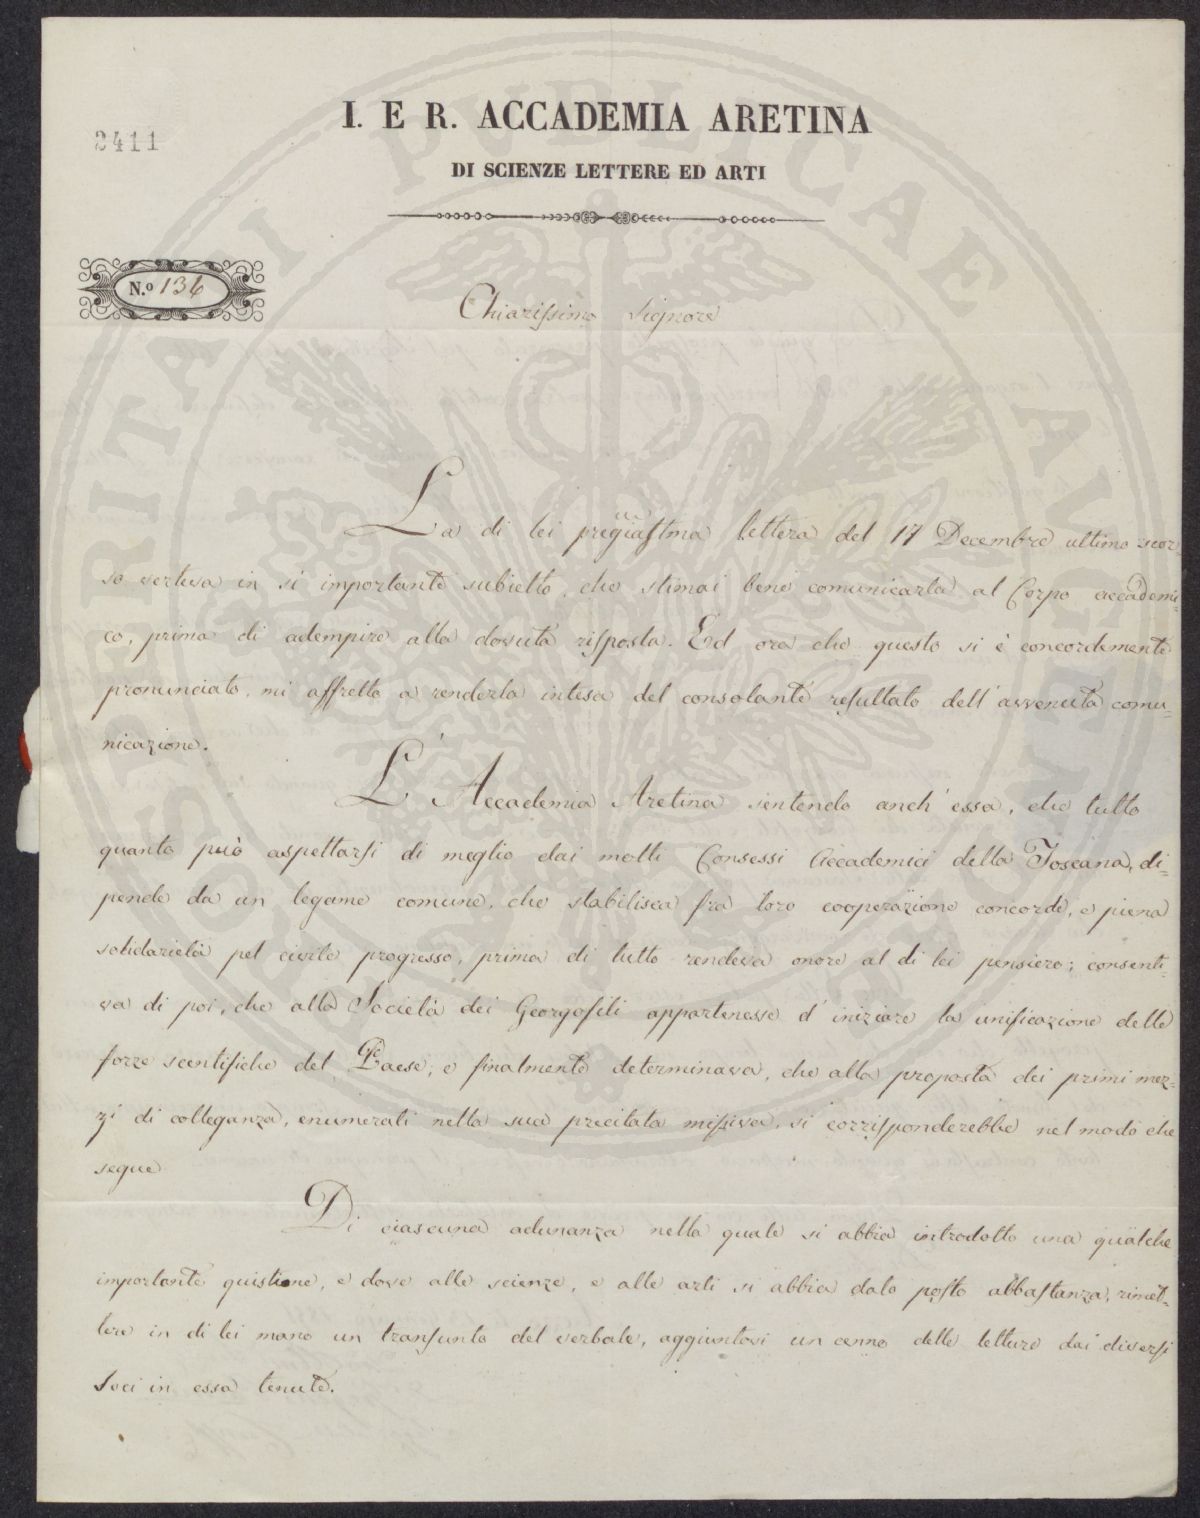 I. E R. ACCADEMIA ARETINA
2411
DI SCIENZE LETTERE ED ARTI
N.o 136
Chiarissimo Signore
La di lei pregiatma lettera del 17 Decembre ultimo scor-
so verteva in sì importante subietto, che stimai bene comunicarla al Corpo accademi-
co, prima di adempire alla dovuta risposta. Ed ora che questo si è concordemente
pronunciato, mi affretto a renderla intesa del consolante resultato dell'avvenuta comu-
nicazione.
L'Accademia Aretina sentendo anch'essa, che tutto
quanto può aspettarsi di meglio dai molti Consessi Accademici della Toscana, di-
pende da un legame comune, che stabilisca fra loro cooperazione concorde, e piena
solidarietà pel civile progresso, prima di tutto rendeva onore al di lei pensiero; consenti-
va di poi, che alla Società dei Georgofili appartenesse d'iniziare la unificazione delle
forze scentifiche del Paese; e finalmente determinava, che alla proposta dei primi mez-
zi di colleganza, enumerati nella sua precitata missiva, si corrisponderebbe nel modo che
segue
Di ciascuna adunanza nella quale si abbia introdotto una qualche
importante quistione, e dove alle scienze, e alle arti si abbia dato posto abbastanza, rimet-
tere in di lei mano un transunto del verbale, aggiuntovi un cenno delle letture dai diversi
Soci in essa tenute.
PROSPERITATI PVBLICAE AVGENDAE